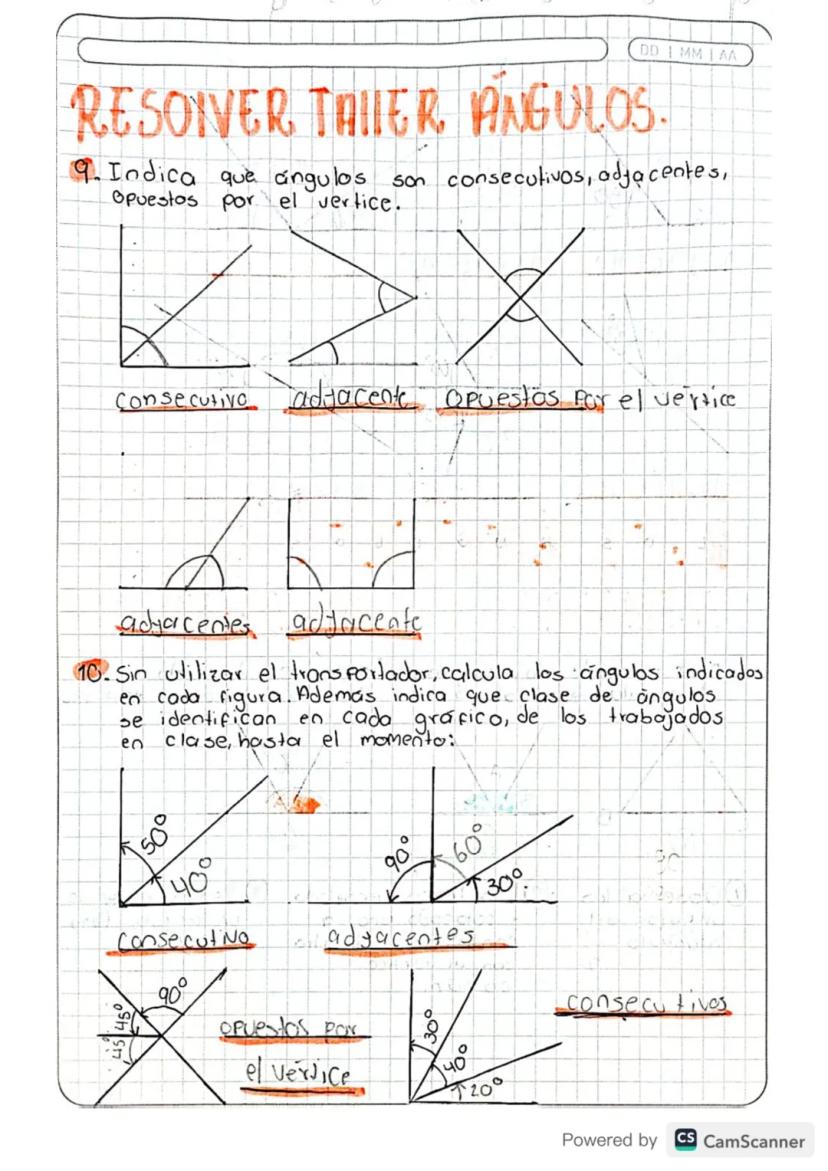 DD | MM | AA
RESOLVER TALLER ÁNGULOS.
9. Indica que ángulos son consecutivos, adyacentes,
opuestos por el vertice.
consecutivo adyacente opuestos por el vértice
adyacentes adyacente
10. Sin utilizar el transportador, calcula los ángulos indicados
en cada figura. Además indica que clase de ángulos
se identifican en cada gráfico, de los trabajados
en clase, hasta el momento:
50° 40° 90° 60° 30°
consecutivo adyacentes
90° 45° 45° opuestos por
el vértice
30° 40° 20° consecutivos
Powered by CS CamScanner